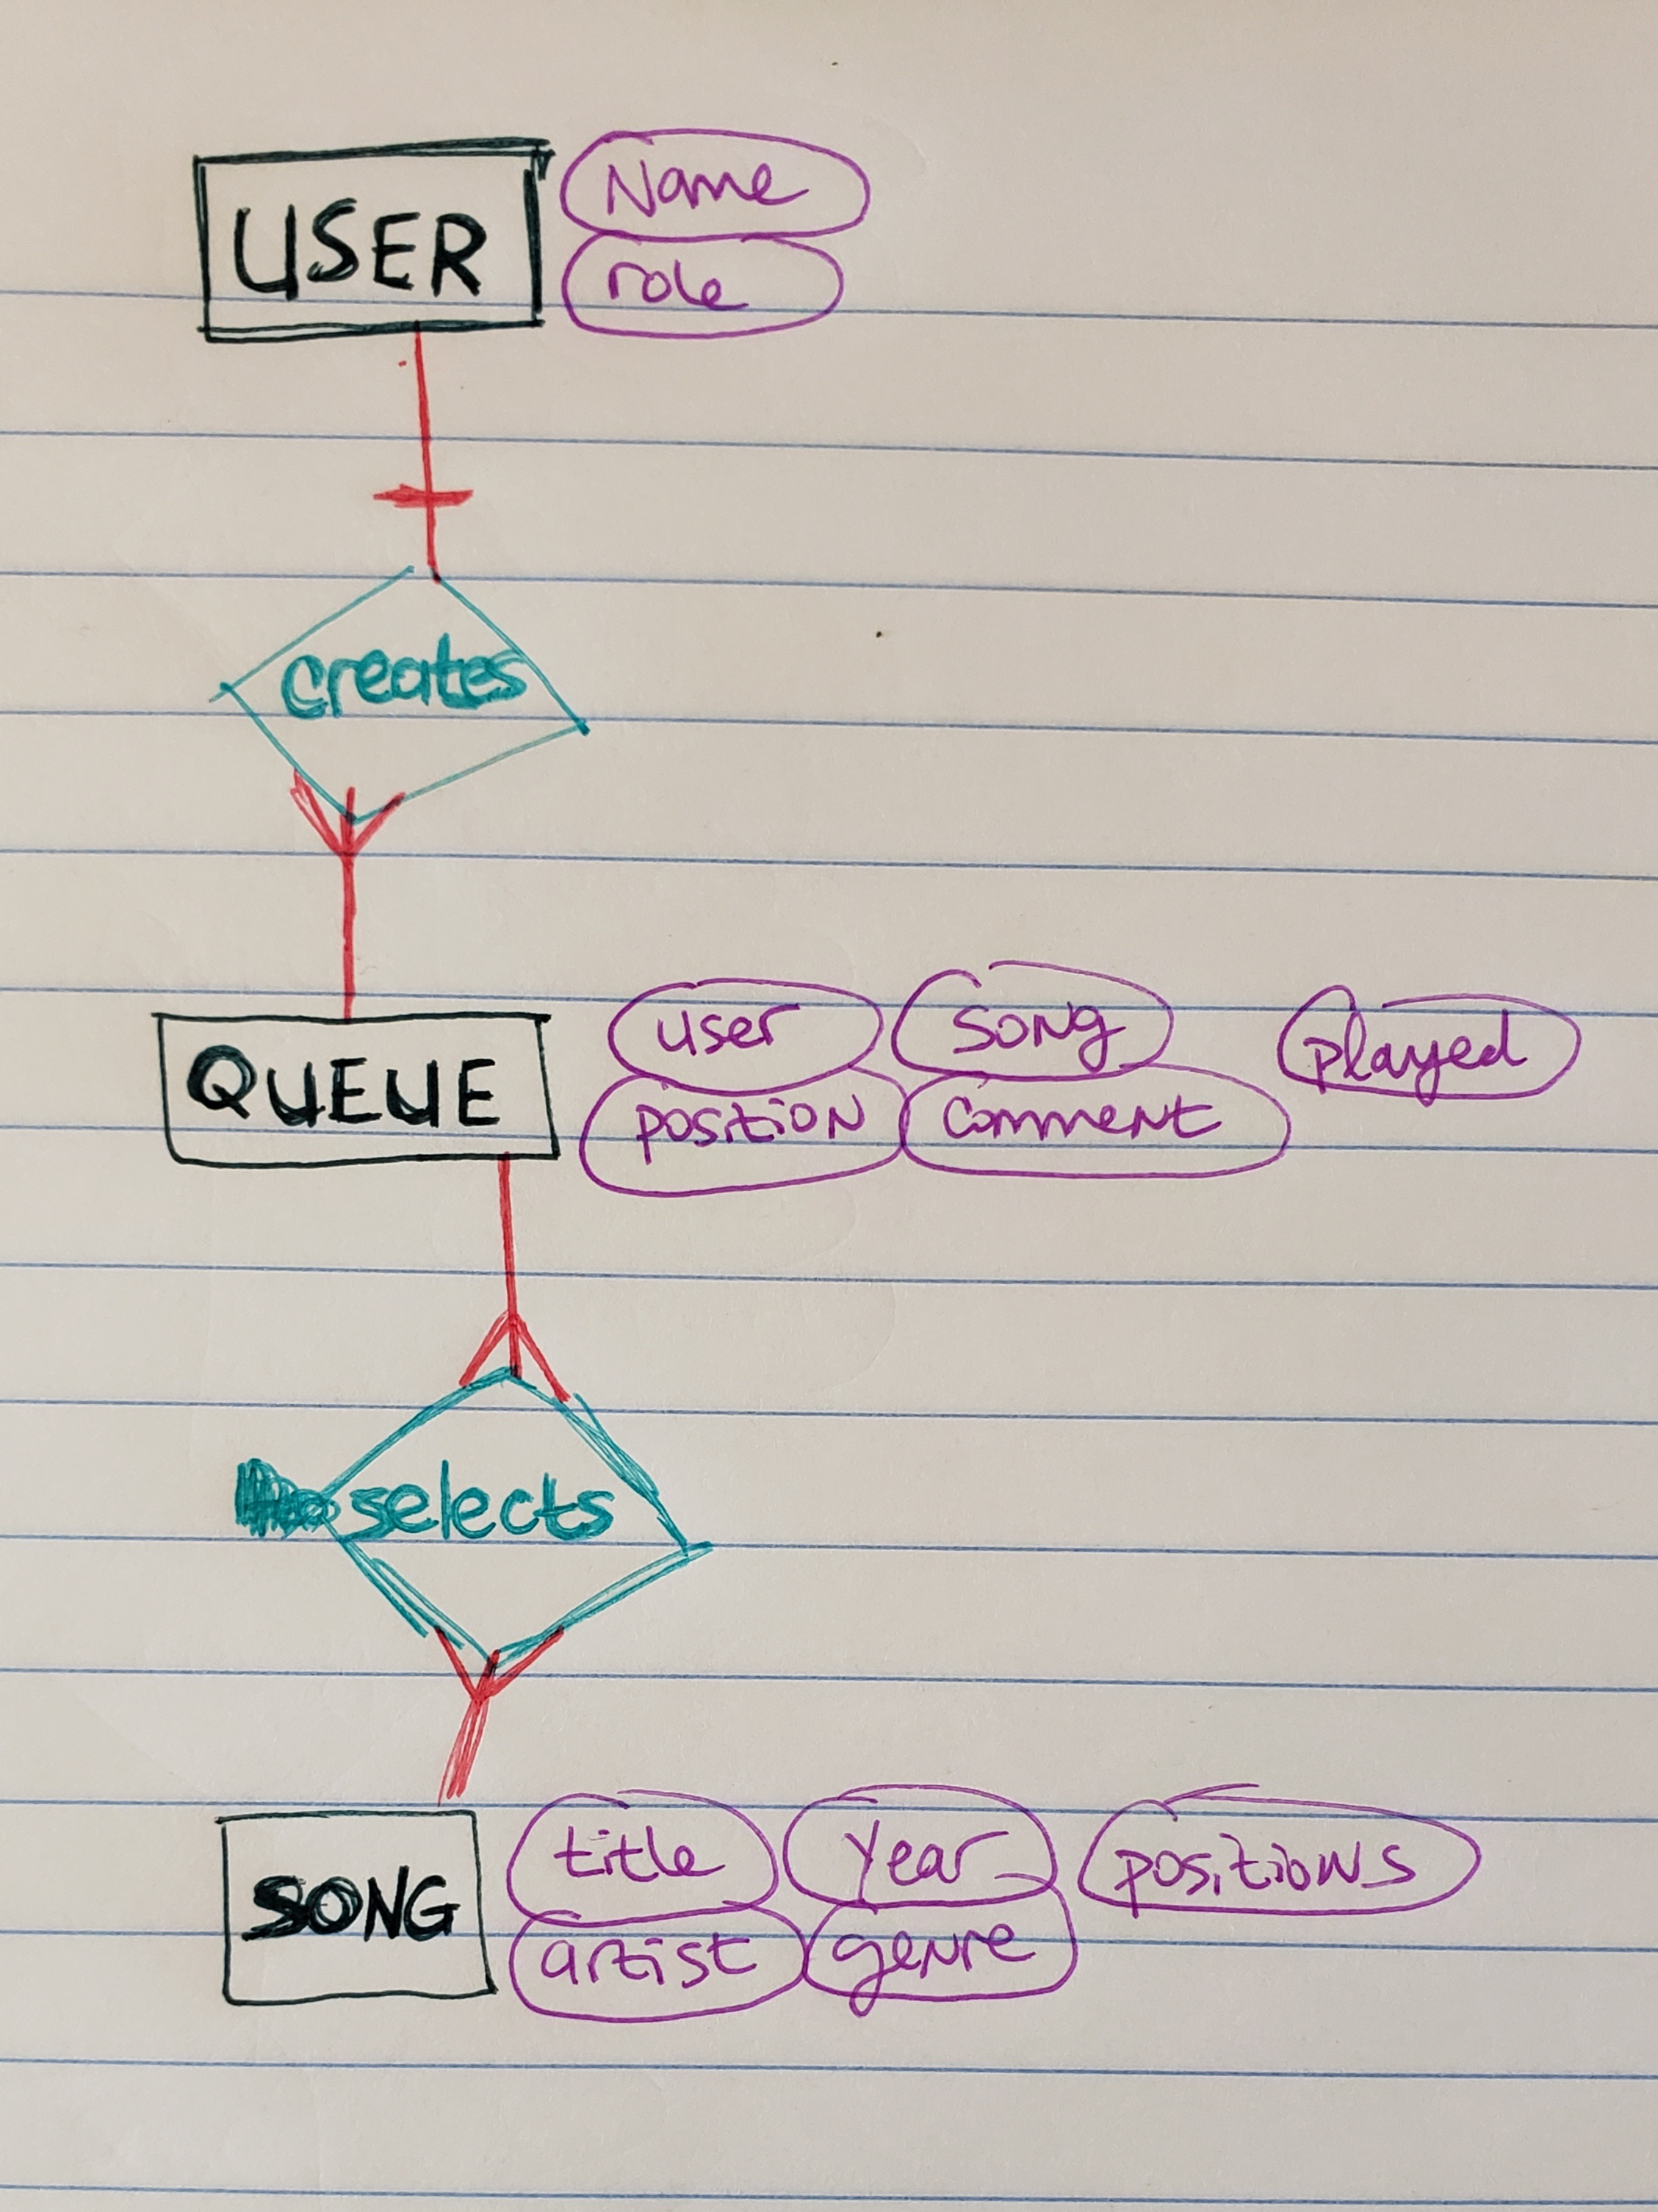 USER Name
role
creates
QUEUE user song played
position comment
selects
SONG title year positions
artist genre